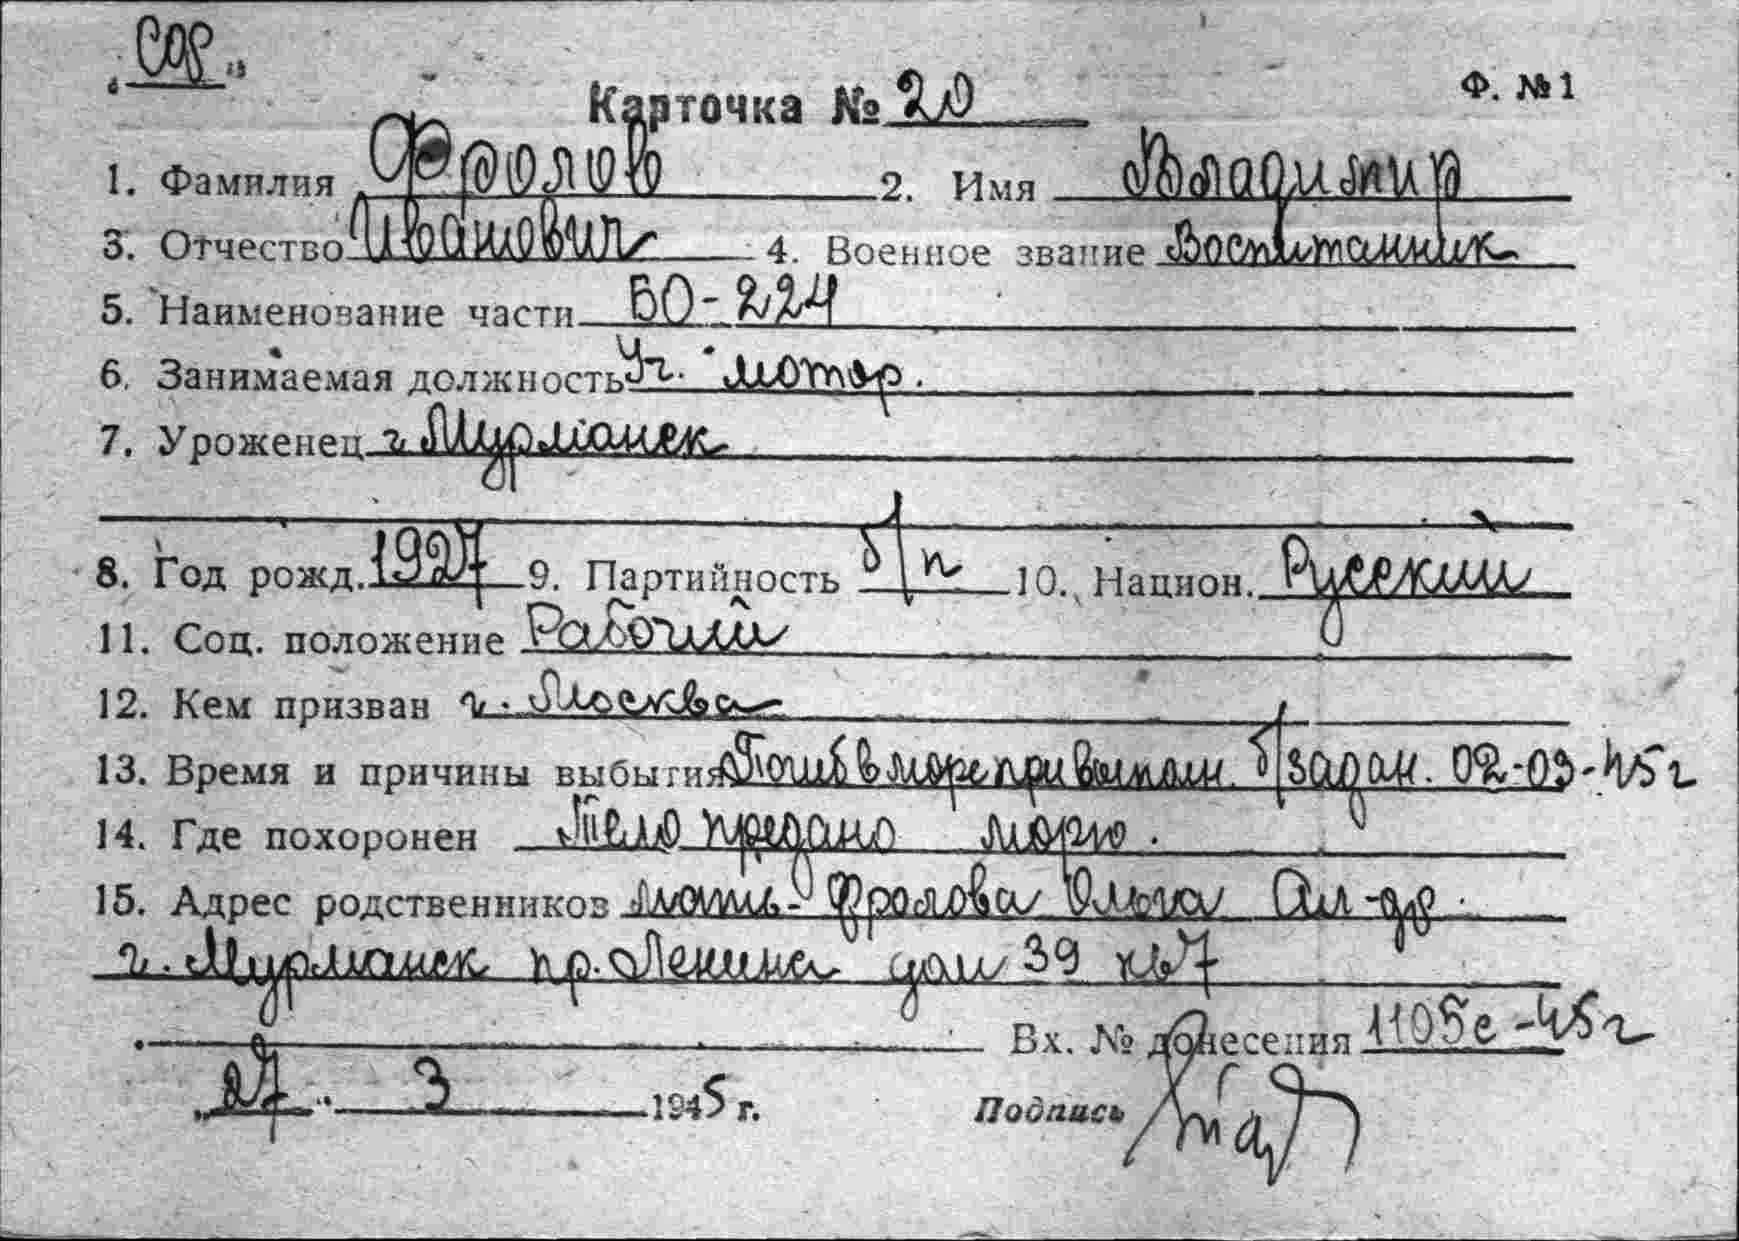 „Сор"
Карточка № 20
Ф. № 1
1. Фамилия Фролов 2. Имя Владимир
3. Отчество Иванович 4. Военное звание Воспитанник
5. Наименование части БО-224
6. Занимаемая должность Уч. мотор.
7. Уроженец г. Мурманск
8. Год рожд. 1927 9. Партийность б/п 10. Национ. Русский
11. Соц. положение Рабочий
12. Кем призван г. Москва
13. Время и причины выбытия Погиб в море при выполн. б/задан. 02-03-45г
14. Где похоронен Тело предано морю.
15. Адрес родственников мать-Фролова Ольга Ал-др.
г. Мурманск пр. Ленина дом 39 кв 7
Вх. № донесения 1105с-45г
„27" 3 1945 г. Подпись